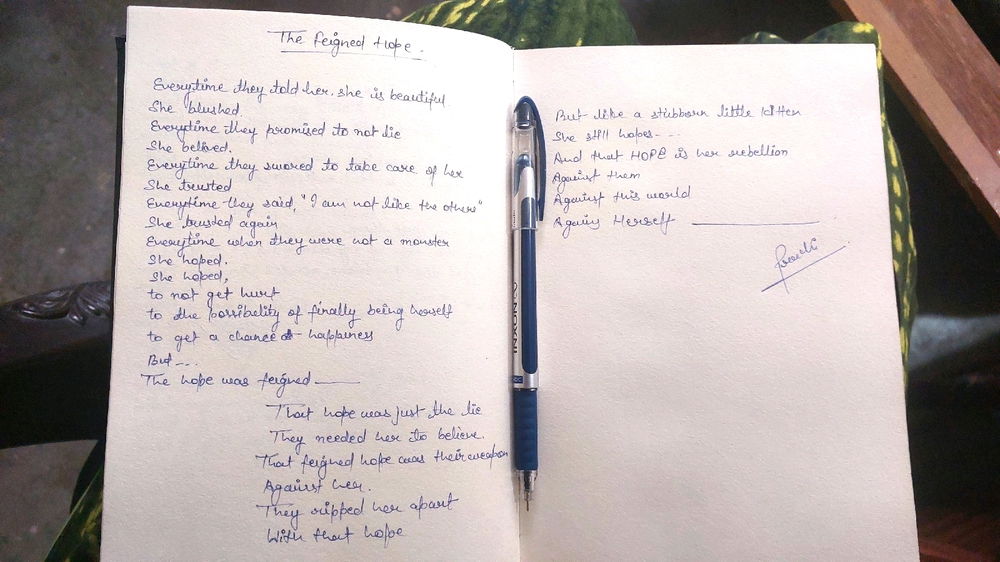 The Feigned Hope.
Everytime they told her, she is beautiful
She blushed.
Everytime they promised to not lie
She belived.
Everytime they swored to take care of her
She trusted
Everytime they said, "I am not like the others"
She trusted again
Everytime when they were not a monster
She hoped.
She hoped,
to not get hurt
to the possibility of finally being herself
to get a chance at happiness
But ---
The hope was feigned ——
That hope was just the lie
They needed her to believe.
That feigned hope was their weapon
Against her.
They ripped her apart
With that hope
But like a stubborn little kitten
She still hopes- - -
And that HOPE is her rebellion
Against them
Against this world
Against Herself ————